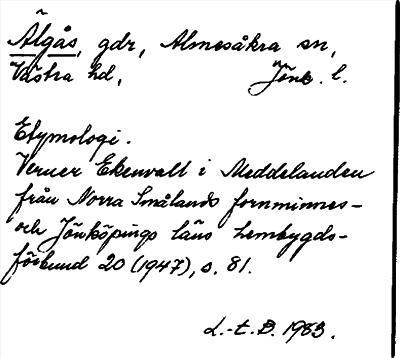 Älgås, gdr, Almesåkra sn,
Västra hd, Jönk. l.
Etymologi.
Verner Ekenvall i Meddelanden
från Norra Smålands fornminnes-
och Jönköpings läns hembygds-
förbund 20 (1947), s. 81.
L.-t. B. 1963.